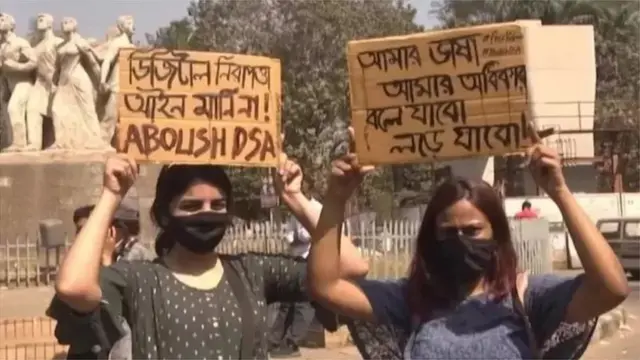 ডিজিটাল নিরাপত্তা
আইন মানিনা!
ABOLISH DSA
আমার ভাষা
আমার অধিকার
বলে যাবো
লড়ে যাবো!